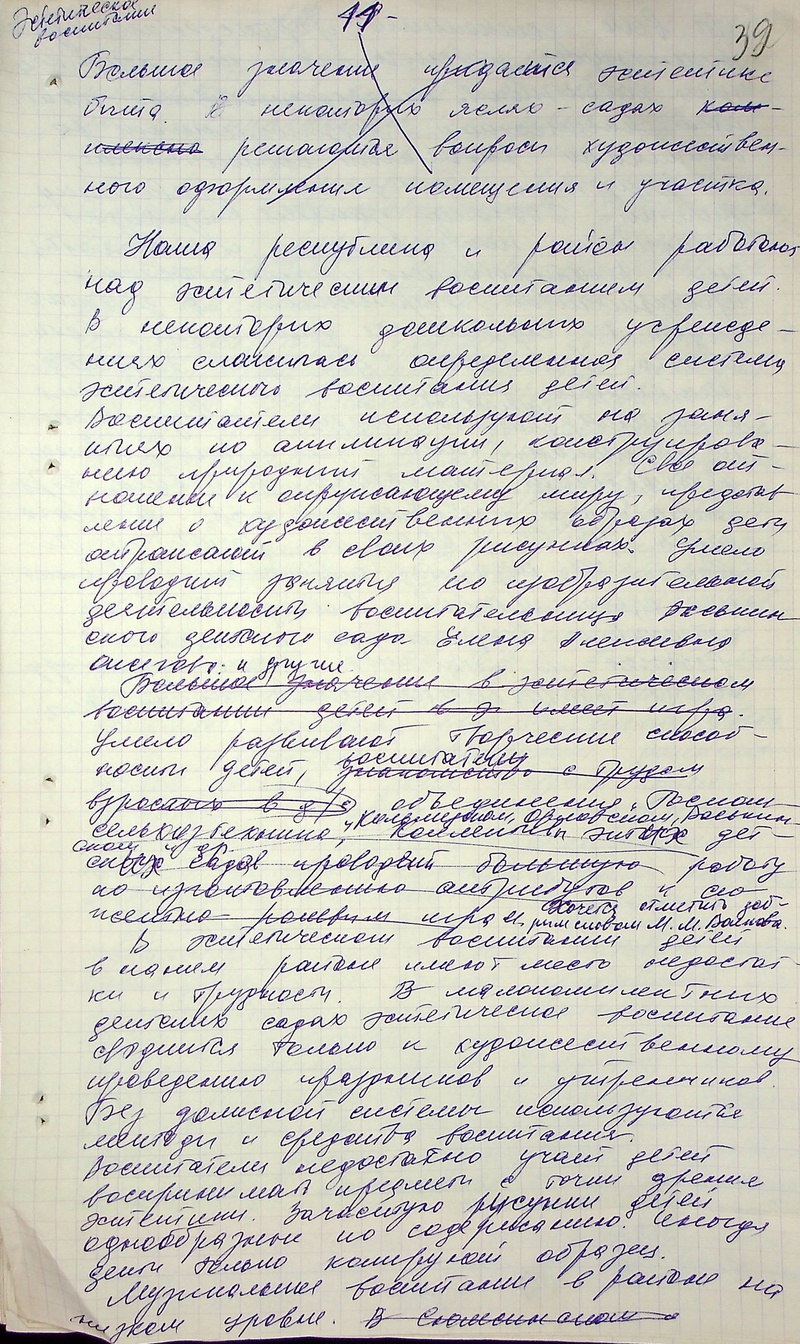 Эстетическое
воспитание
11-
39
Большое значение придается эстетике
быта. В некоторых яслях-садах ком-
плексно решаются вопросы художествен-
ного оформления помещения и участка.
Наша республика и район работают
над эстетическим воспитанием детей.
В некоторых дошкольных учрежде-
ниях сложилась определенная система
эстетического воспитания детей.
Воспитатели используют на заня-
тиях по аппликации, конструирова-
нию природный материал. Свое от-
ношение к окружающему миру, представ
ления о художественных образах дети
отражают в своих рисунках. Умело
проводит занятия по изобразительной
деятельности воспитательница
ского детского сада Елена Алексеевна
и другие.
Большое значение в эстетическом
воспитании детей в э имеет игра.
Умело развивают творческие способ-
ности детей, воспитатели
знакомство с трудом
взрослых в д/с объединения "Госком-
сельхозтехника", Коломенском, Орловском,
коллективы этих дет-
ских садов проводят большую работу
по изготовлению атрибутов к сю-
жетно-ролевым играм. Хочется отметить
М. М. Волкова.
В эстетическом воспитании детей
в нашем районе имеют место недостат-
ки и трудности. В малокомплектных
детских садах эстетическое воспитание
сводится только к художественному
проведению праздников и утренников.
Без должной системы используются
методы и средства воспитания.
Воспитатели недостаточно учат детей
воспринимать предметы с точки зрения
эстетики. Зачастую рисунки детей
однообразные по содержанию. Иногда
дети только копируют образец.
Музыкальное воспитание в районе на
низком уровне. В